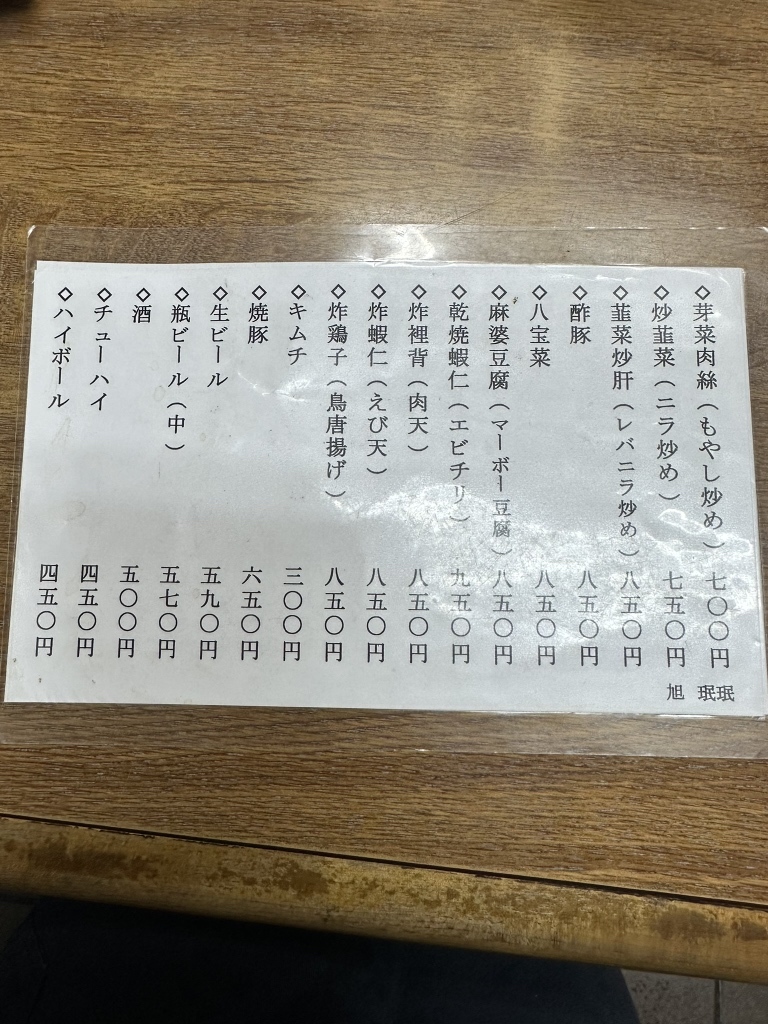 ◇芽菜肉絲（もやし炒め）七〇〇円
◇炒韮菜（ニラ炒め）七五〇円
◇韮菜炒肝（レバニラ炒め）八五〇円
◇酢豚 八五〇円
◇八宝菜 八五〇円
◇麻婆豆腐（マーボー豆腐）八五〇円
◇乾焼蝦仁（エビチリ）九五〇円
◇炸裡背（肉天）八五〇円
◇炸蝦仁（えび天）八五〇円
◇炸鶏子（鳥唐揚げ）八五〇円
◇キムチ 三〇〇円
◇焼豚 六五〇円
◇生ビール 五九〇円
◇瓶ビール（中）五七〇円
◇酒 五〇〇円
◇チューハイ 四五〇円
◇ハイボール 四五〇円
旭 珉珉